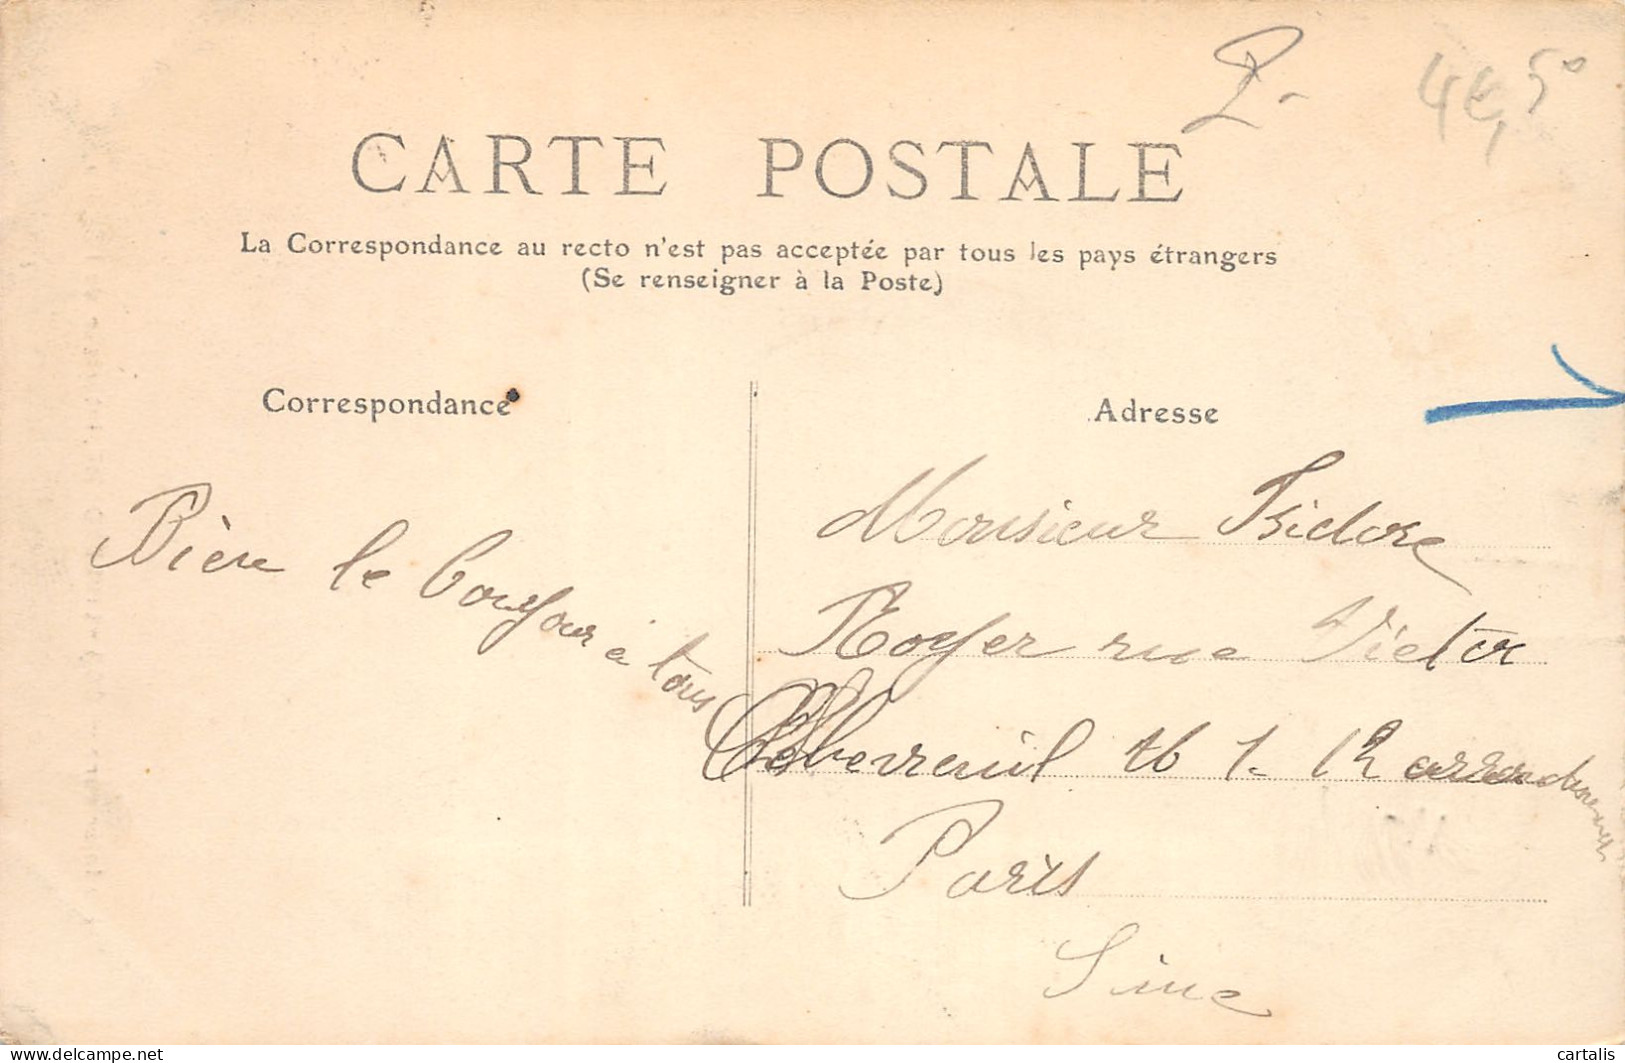 2-
4€,50
CARTE POSTALE
La Correspondance au recto n'est pas acceptée par tous les pays étrangers
(Se renseigner à la Poste)
Correspondance
Bière le bonjour à tous
Adresse
Monsieur Isidore
Royer rue Victor
Chevreuil 16 1- 12 arrondisement
Paris
Sine
www.delcampe.net
cartalis